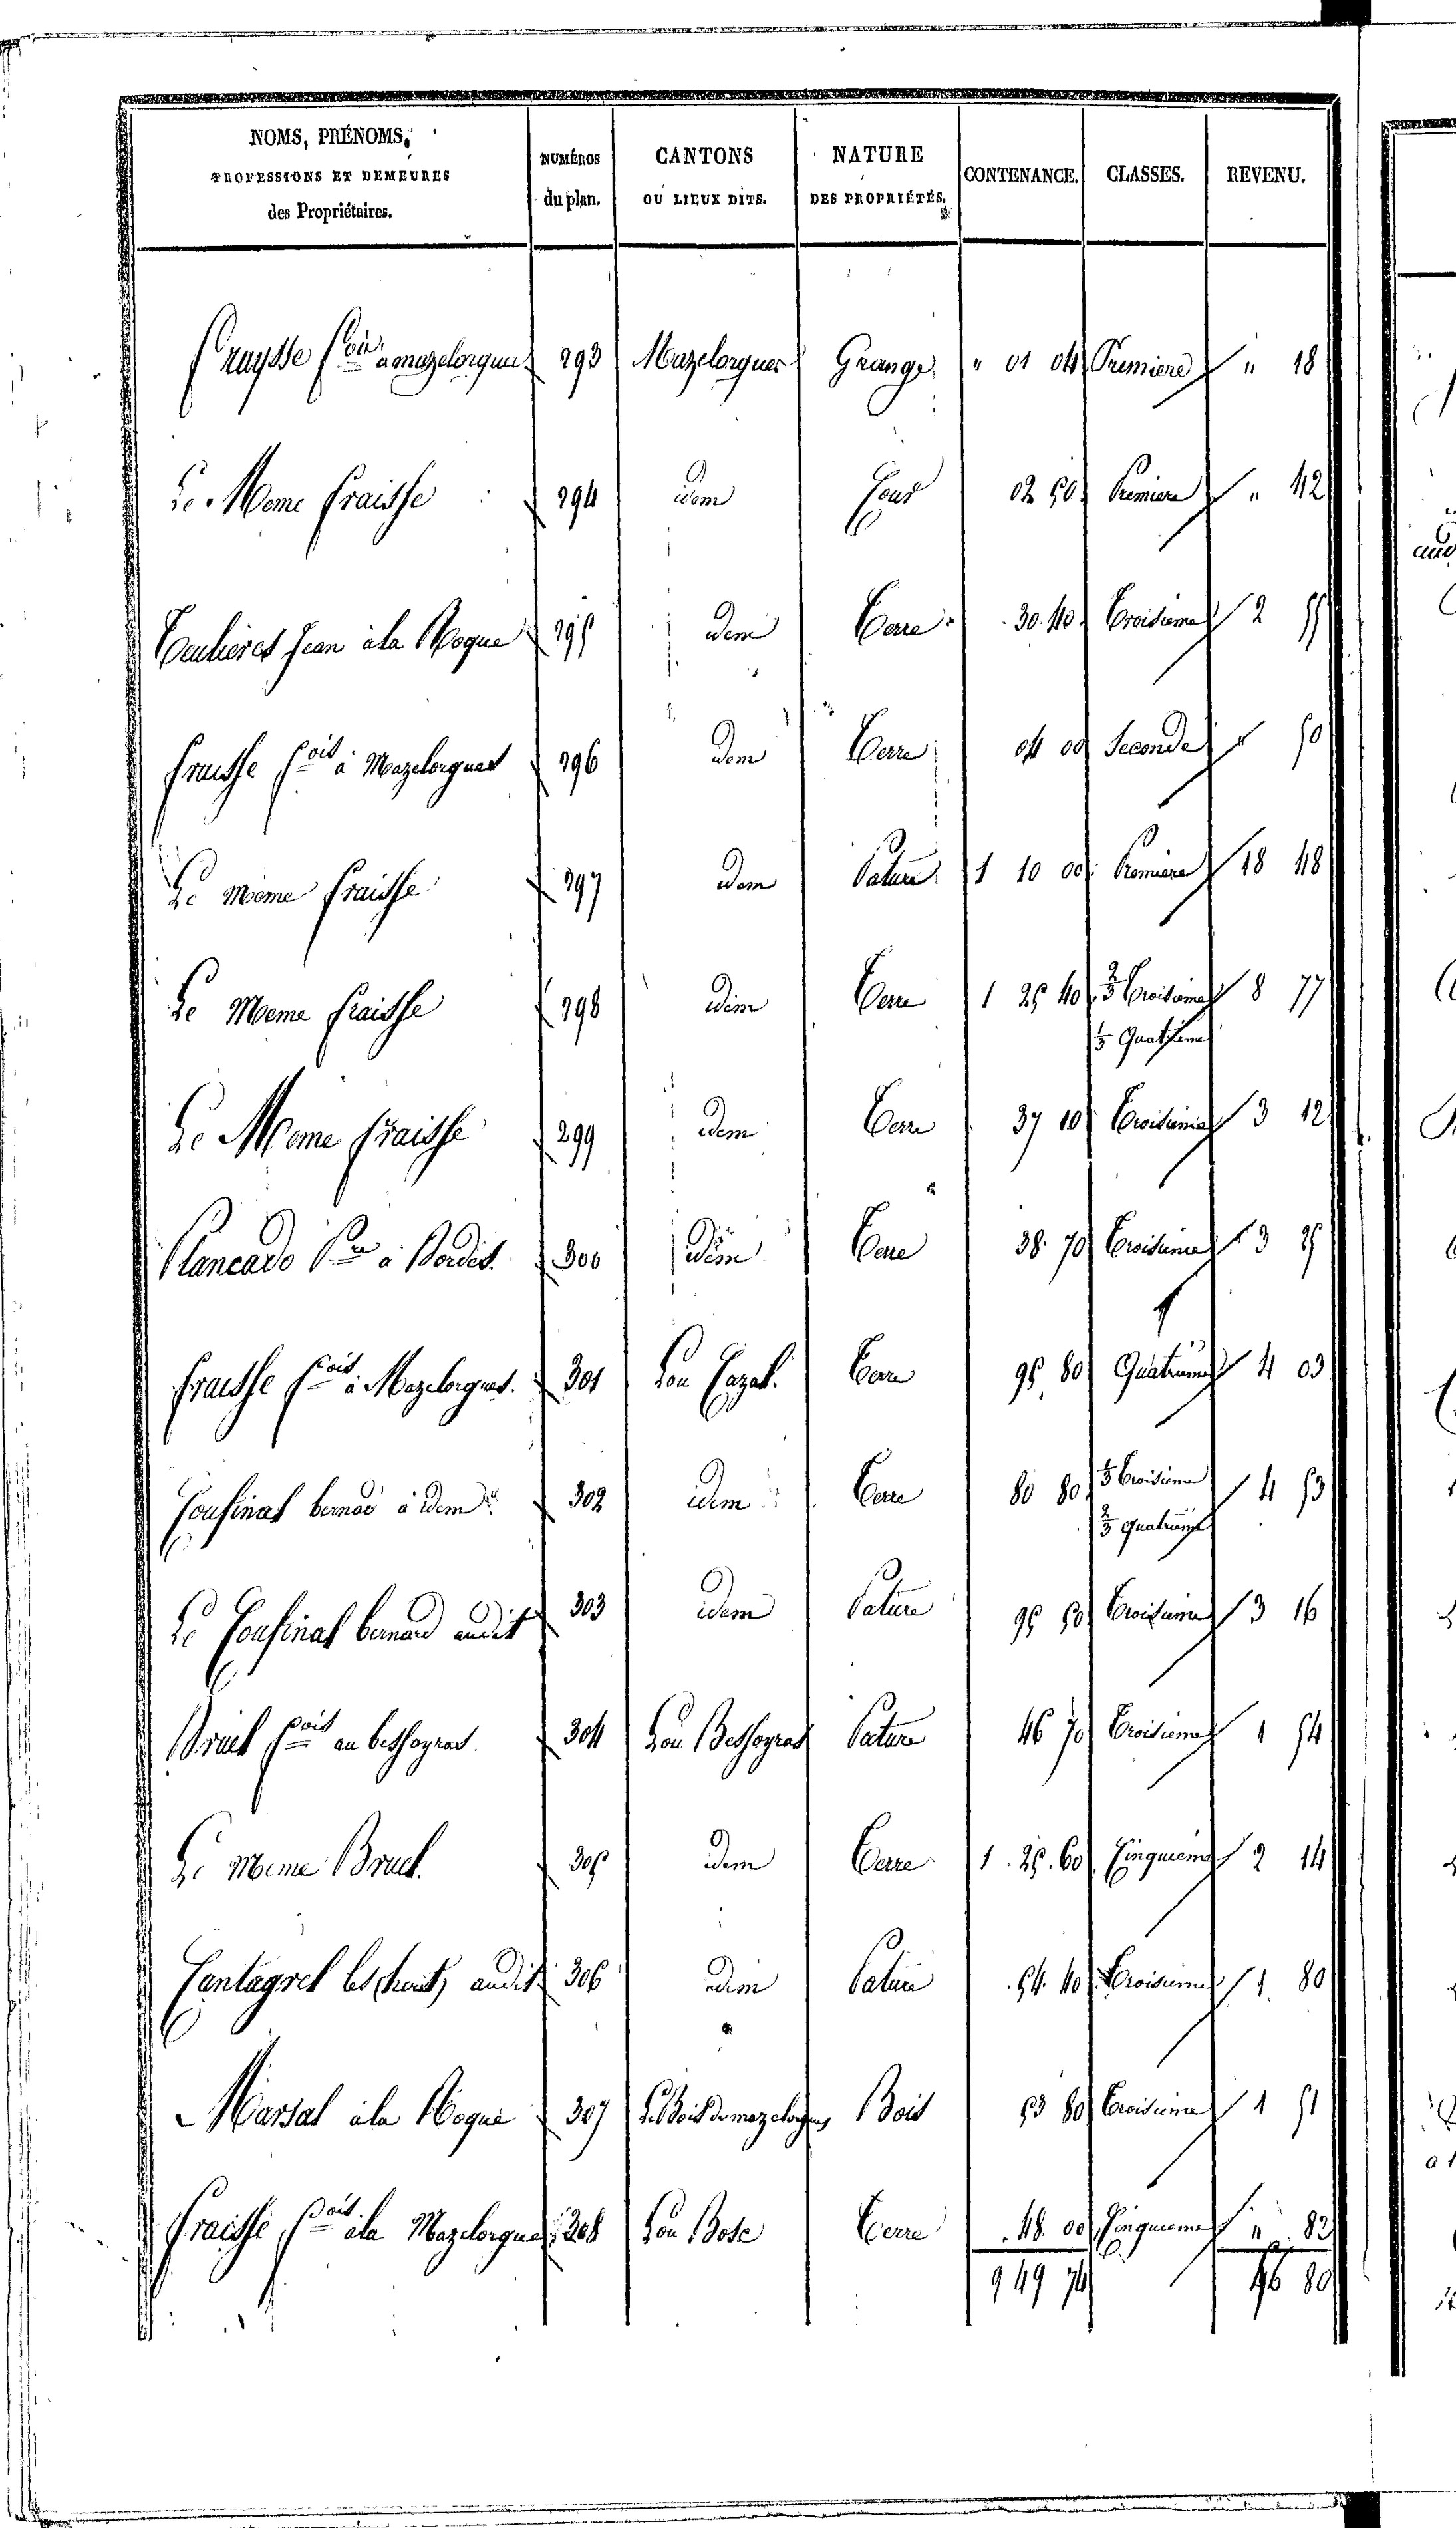 NOMS, PRÉNOMS,
PROFESSIONS ET DEMEURES
des Propriétaires.
NUMÉROS
du plan.
CANTONS
OU LIEUX DITS.
NATURE
DES PROPRIÉTÉS.
CONTENANCE.
CLASSES.
REVENU.
Fraysse fois a mazelorgues 293 Mazelorgues Grange " 01 04 Premiere " 18
Le Meme fraisse 294 idem Cour 02 50 Premiere " 42
Teulieres Jean à la Roque 295 idem Terre 30 40 Troisieme 2 55
fraisse fois à Mazelorgues 296 idem Terre 04 00 Seconde " 50
Le meme fraisse 297 idem Pature 1 10 00 Premiere 18 48
Le meme fraisse 298 idem Terre 1 25 40 2/3 Troisieme 8 77
1/3 Quatrieme
Le Meme fraisse 299 idem Terre 37 10 Troisieme 3 12
Plancade Pre à Bordes 300 idem Terre 38 70 Troisieme 3 25
fraisse fois à Mazelorgues. 301 Lou Cazal. Terre 95 80 Quatrieme 4 03
Cousinal bernad à idem 302 idem Terre 80 80 1/3 Troisieme 4 53
2/3 Quatrieme
Le Cousinal bernard audit 303 idem Pature 95 50 Troisieme 3 16
Bruel fois au bessayrou. 304 Lou Bessayrou Pature 46 70 Troisieme 1 54
Le meme Bruel. 305 idem Terre 1 25 60 Cinquieme 2 14
Cantagrel les (hérit) audit 306 idem Pature 54 40 Troisieme 1 80
Marsal à la Roque 307 Le Bois de mazelorgues Bois 53 80 Troisieme 1 51
fraisse fois à la Mazelorgues 308 Lou Bosc Terre 48 00 Cinquieme " 82
9 49 74 56 80